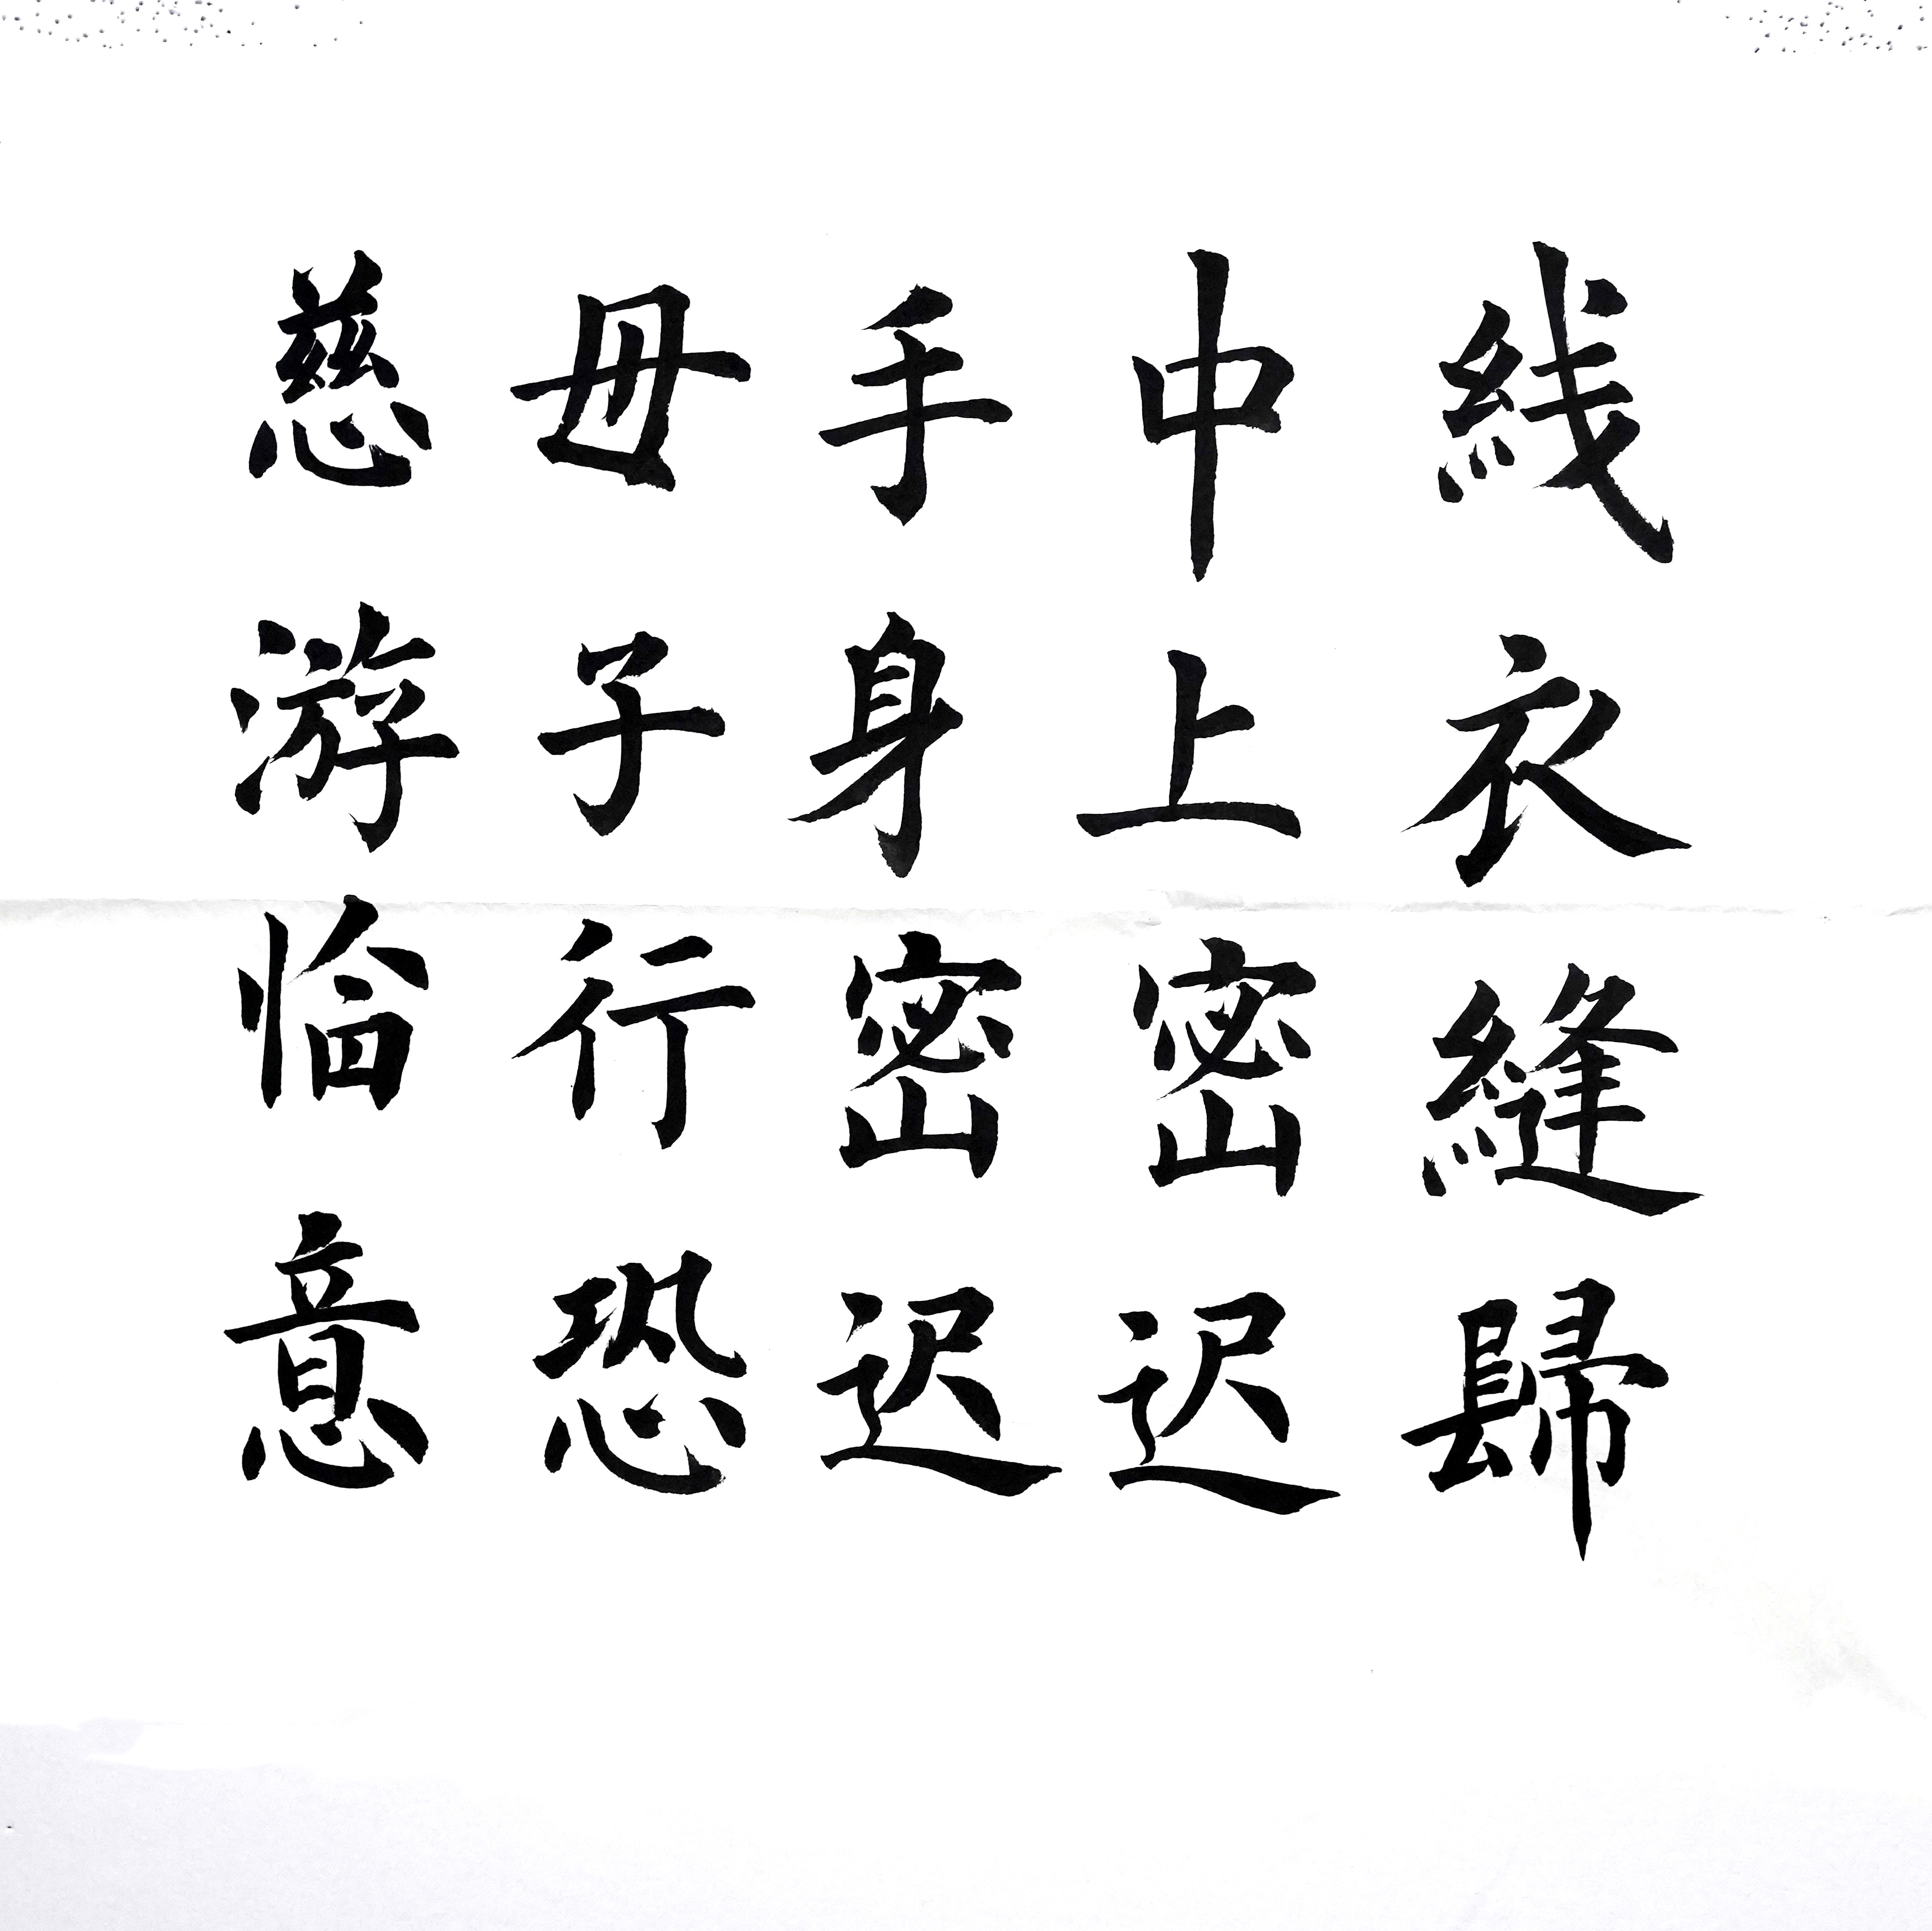 慈母手中线
游子身上衣
临行密密縫
意恐迟迟歸